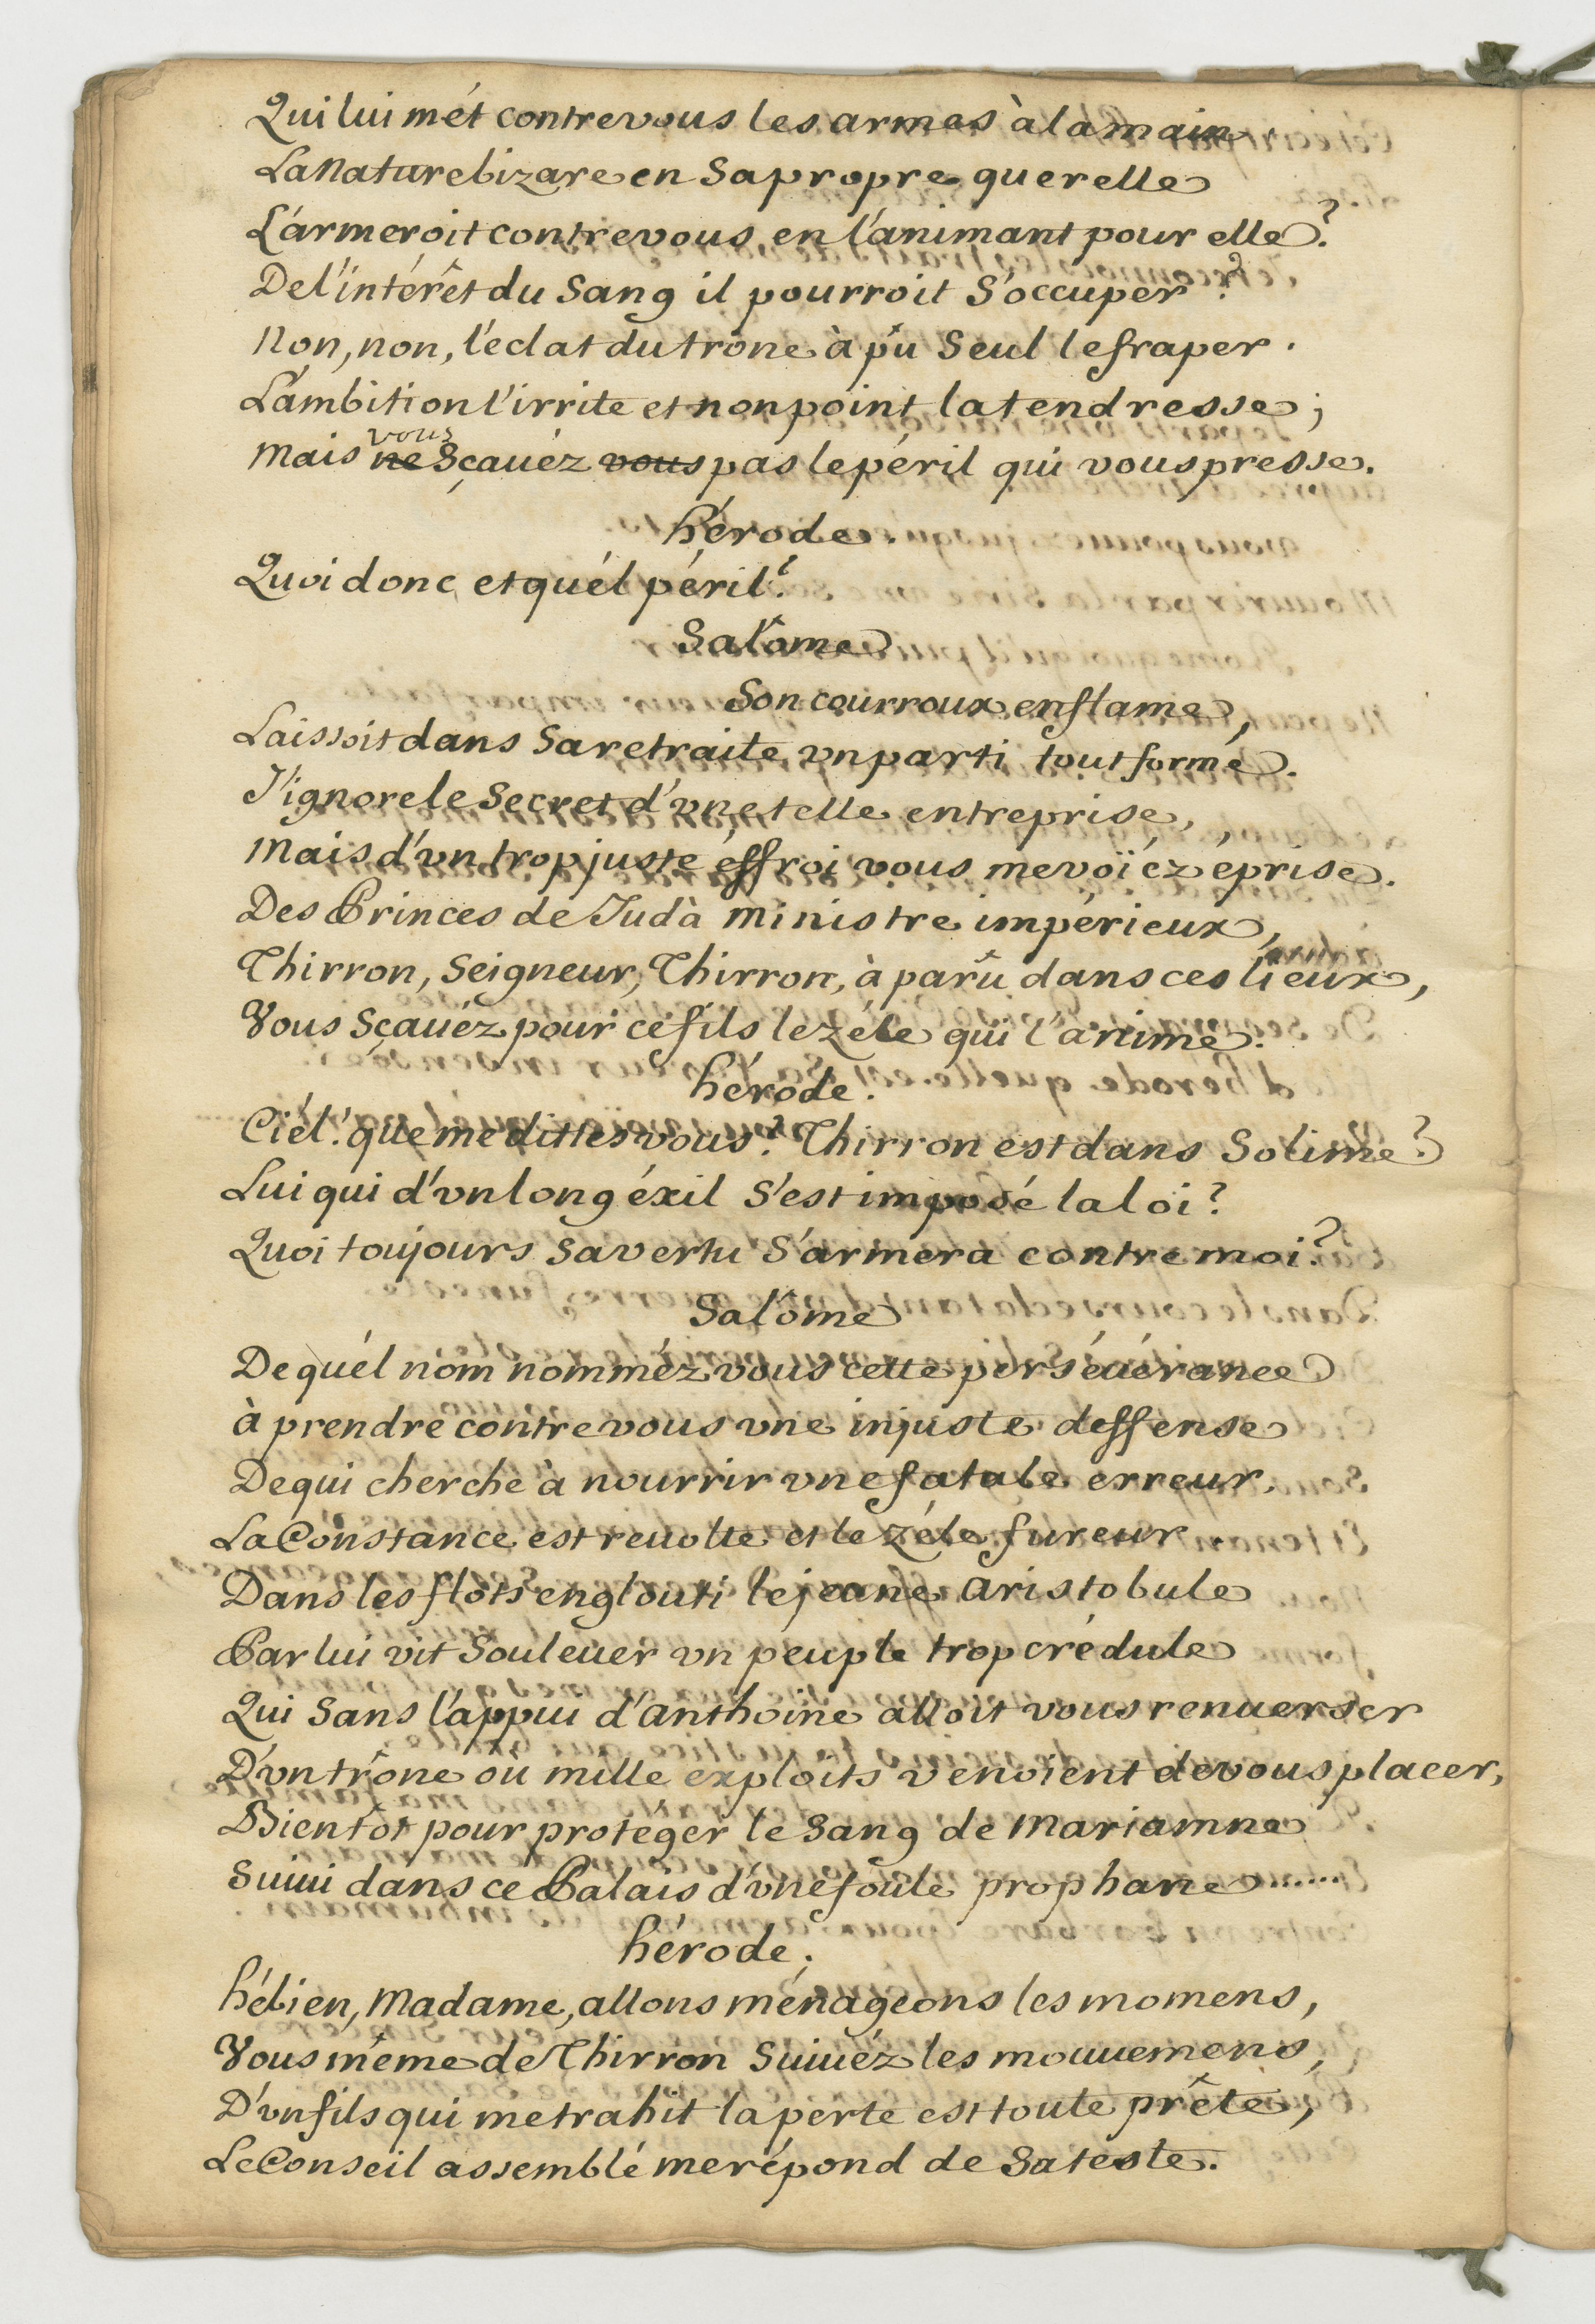 Qui lui mét contre vous les armes à la main.
La Nature bizare en Sa propre querelle
L'armeroit contre vous en l'animant pour elle?
De l'intérêt du Sang il pourroit S'occuper?
Non, non, l'eclat du trône à pû Seul le fraper.
L'ambition l'irrite et non point la tendresse;
Mais ne vous Sçauéz vous pas le péril qui vous presse.
hérode.
Quoi donc et quél péril?
Salôme
Son courroux enflame,
Laissoit dans Sa retraite vn parti tout formé.
J'ignore le Secret d'vne telle entreprise,
Mais d'vn trop juste éffroi vous me voïéz éprise.
Des Princes de Judà Ministre impérieux,
Thirron, Seigneur, Thirron, à parû dans ces lieux,
Vous Sçauéz pour ce fils le zéle qui l'anime.
hérode.
Ciél! que me dittes vous? Thirron est dans Solime?
Lui qui d'vn long éxil S'est imposé la loi?
Quoi toujours Sa vertu S'armera contre moi?
Salôme
De quél nom nommèz vous cette perséuérance
à prendre contre vous vne injuste deffense
De qui cherche à nourrir vne fatale erreur,
La Constance est reuolte et le Zéle fureur.
Dans les flots englouti le jeune Aristobule
Par lui vit Souleuer vn peuple trop crédule
Qui Sans l'appui d'Anthoine alloit vous renuerser
D'vn trône où mille exploits venoient de vous placer,
Bientôt pour protéger le Sang de Mariamne
Suiui dans ce Palais d'vne foule prophane......
hérode.
hébien, Madame, allons ménageons les momens,
Vous même de Thirron Suiuéz les mouuemens,
D'vn fils qui me trahit la perte est toute prête,
Le Conseil assemblé me répond de Sa teste.